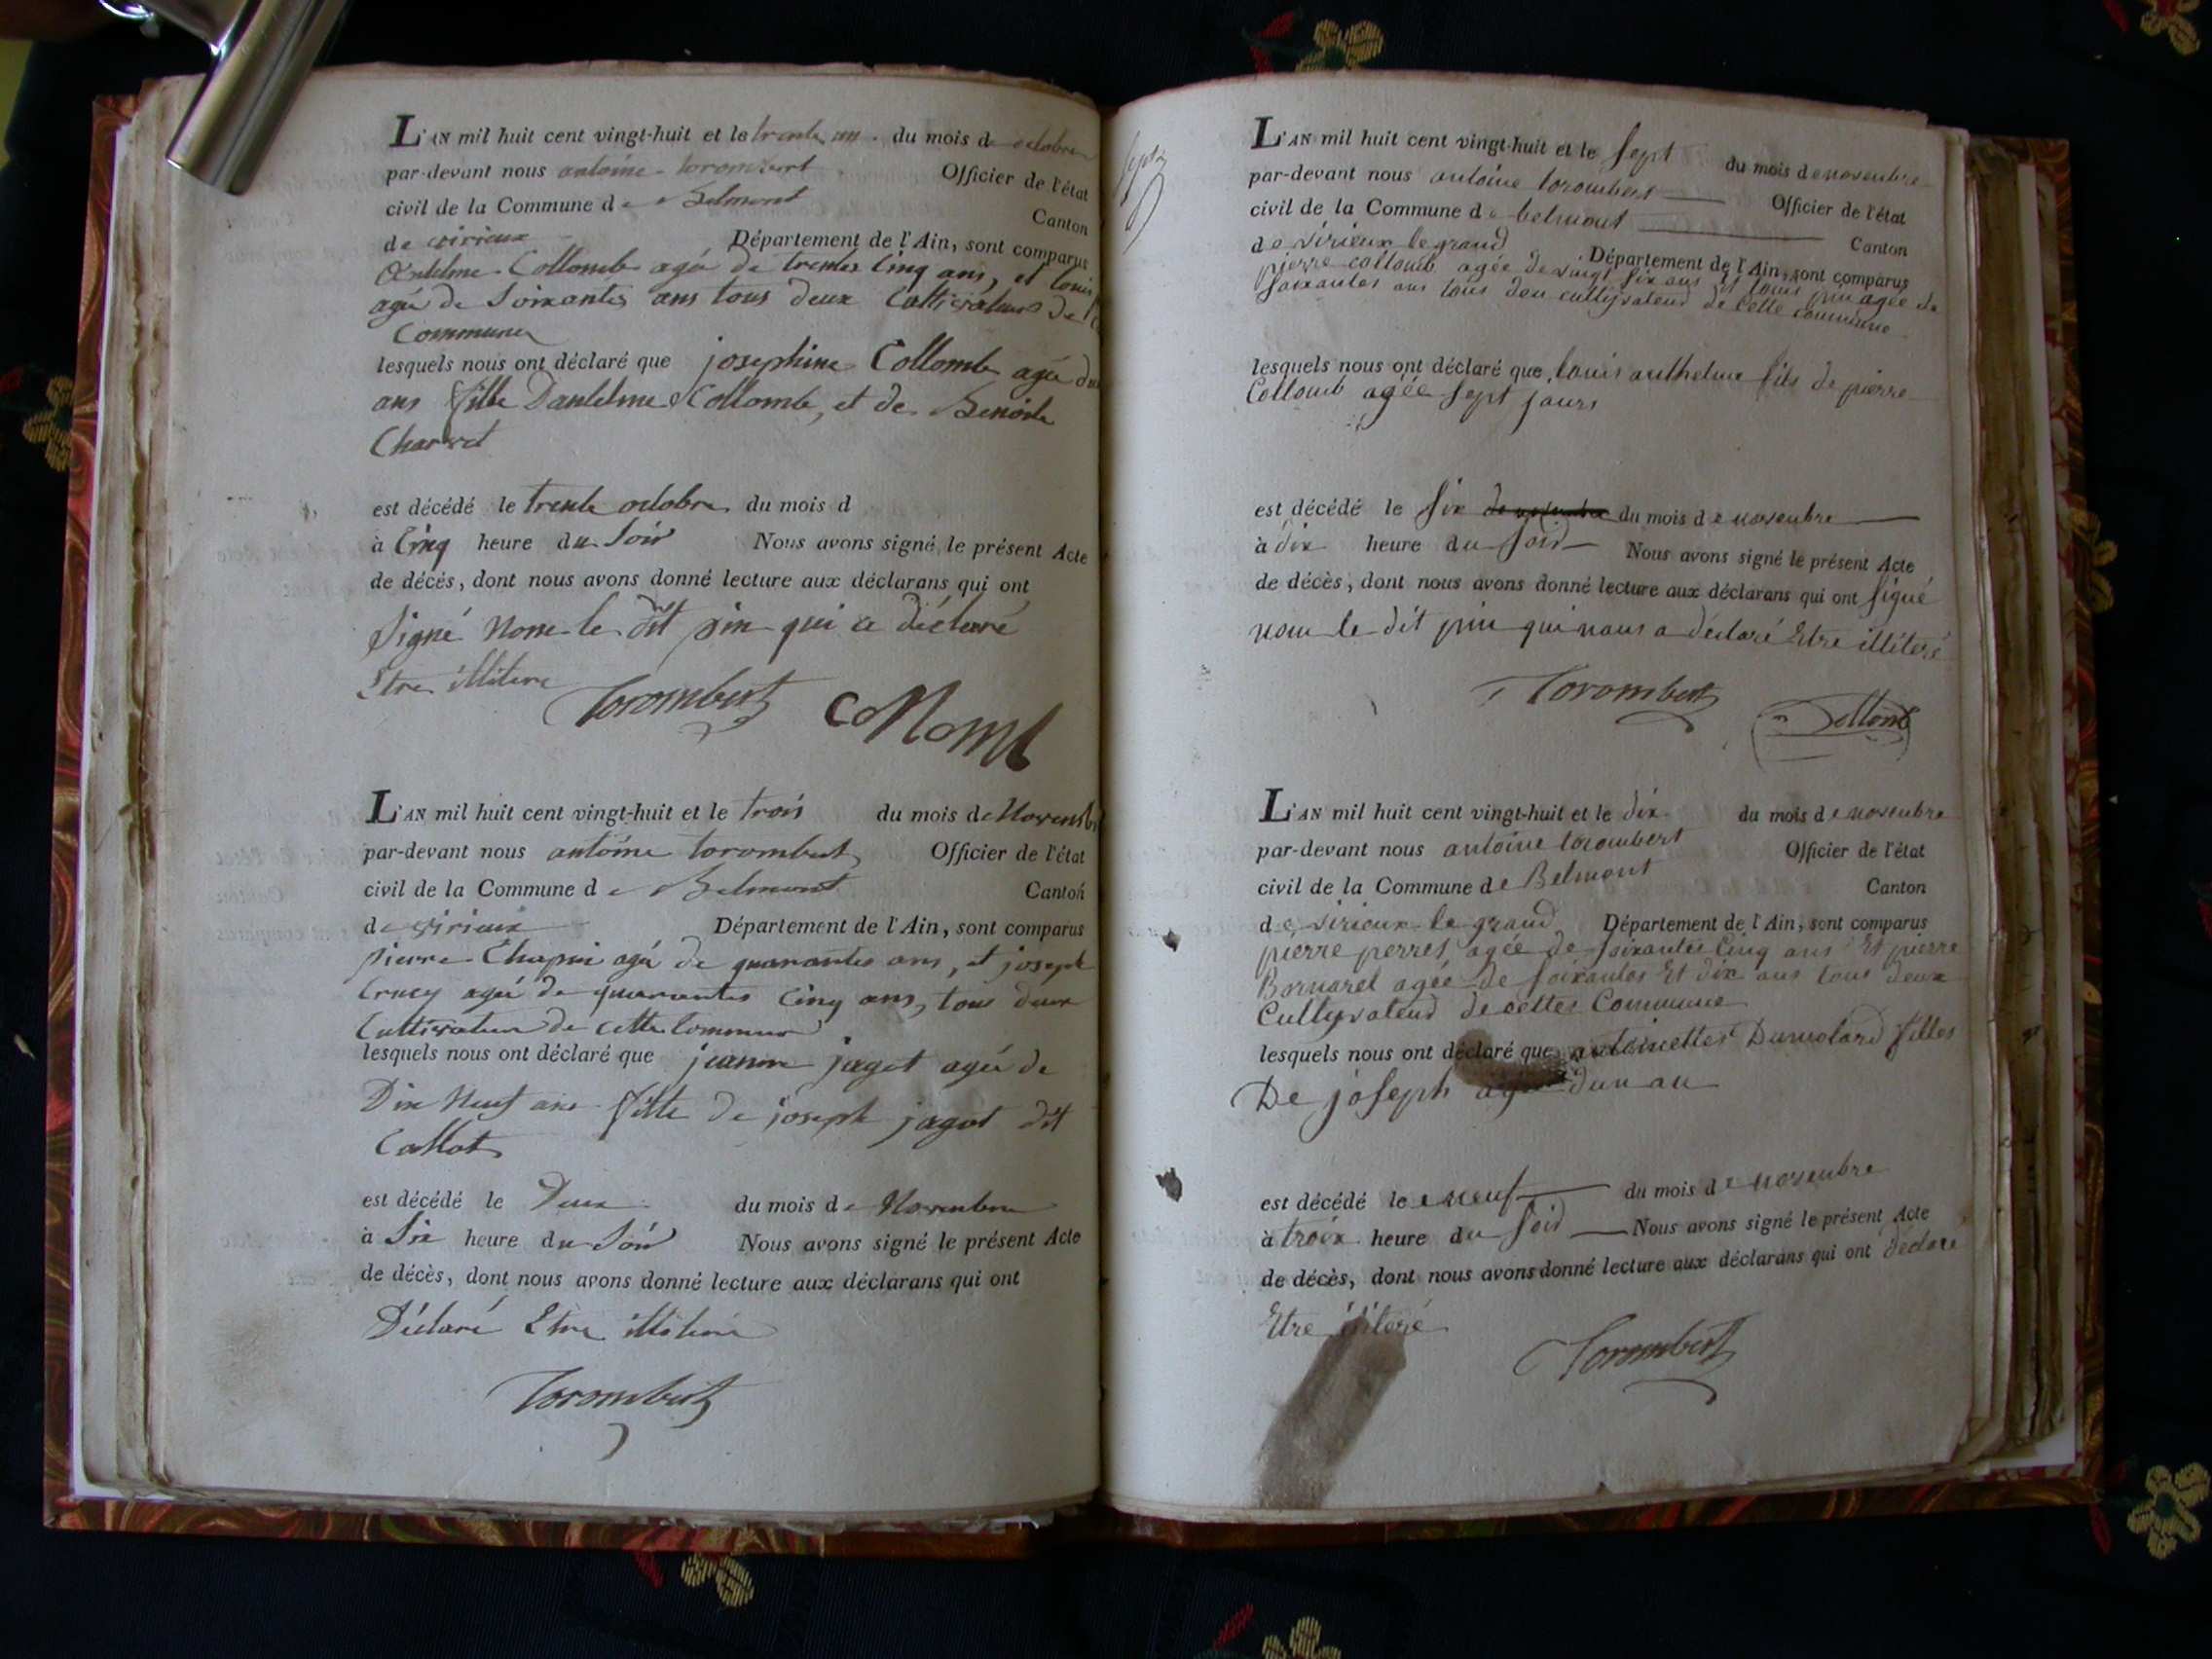 L'AN mil huit cent vingt-huit et le trente un du mois de octobre
par-devant nous antoine torombert Officier de l'état
civil de la Commune de Belmont Canton
de virieux Département de l'Ain, sont comparus
Collomb agé de trentes Cinq ans, et louis
agé de Soixantes ans tous deux Cultivateurs de
Commune
lesquels nous ont déclaré que josephine Collomb agé
ans fille Dantelme Collomb, et de Benoite
Charvet
est décédé le trente octobre du mois d
à Cinq heure du Soir Nous avons signé le présent Acte
de décès, dont nous avons donné lecture aux déclarans qui ont
Signé None le dit pin qui a déclaré
Etre illitere
Torombert Collomb
L'AN mil huit cent vingt-huit et le trois du mois de Novembre
par-devant nous antoine torombert Officier de l'état
civil de la Commune de Belmont Canton
de virieux Département de l'Ain, sont comparus
pierre agé de quarantes ans, et joseph
agé de quarantes Cinq ans, tous deux
Cultivateur de cette Commune
lesquels nous ont déclaré que jeanne jagot agé de
Dix Neuf ans fille de joseph jagot dit
Collot
est décédé le Deux du mois de Novembre
à Six heure du Soir Nous avons signé le présent Acte
de décès, dont nous avons donné lecture aux déclarans qui ont
Déclaré Etre illiteré
Torombert
Sept
L'AN mil huit cent vingt-huit et le Sept du mois de novembre
par-devant nous antoine torombert Officier de l'état
civil de la Commune de belmont Canton
de virieux le grand Département de l'Ain, sont comparus
pierre collomb agée de vingt six ans et louis pin agée de
soixantes ans tous deu cultyvateur de cette commune
lesquels nous ont déclaré que louis anthelme fils de pierre
Collomb agée Sept jours
est décédé le Six de novembre du mois de novembre
à dix heure du Soir Nous avons signé le présent Acte
de décès, dont nous avons donné lecture aux déclarans qui ont signé
non le dit pin qui nous a déclaré Etre illiteré
Torombert Collomb
L'AN mil huit cent vingt-huit et le dix du mois de novembre
par-devant nous antoine torombert Officier de l'état
civil de la Commune de Belmont Canton
de virieux le grand Département de l'Ain, sont comparus
pierre perret agée de soixantes Cinq ans Et pierre
Bornarel agée de soixantes Et dix ans tous deux
Cultyvateur de cettes Commune
lesquels nous ont déclaré que antoinettes Dumolard filles
De joseph agée dun an
est décédé le neuf du mois de novembre
à troix heure du Soir Nous avons signé le présent Acte
de décès, dont nous avons donné lecture aux déclarans qui ont déclaré
Etre
Torombert